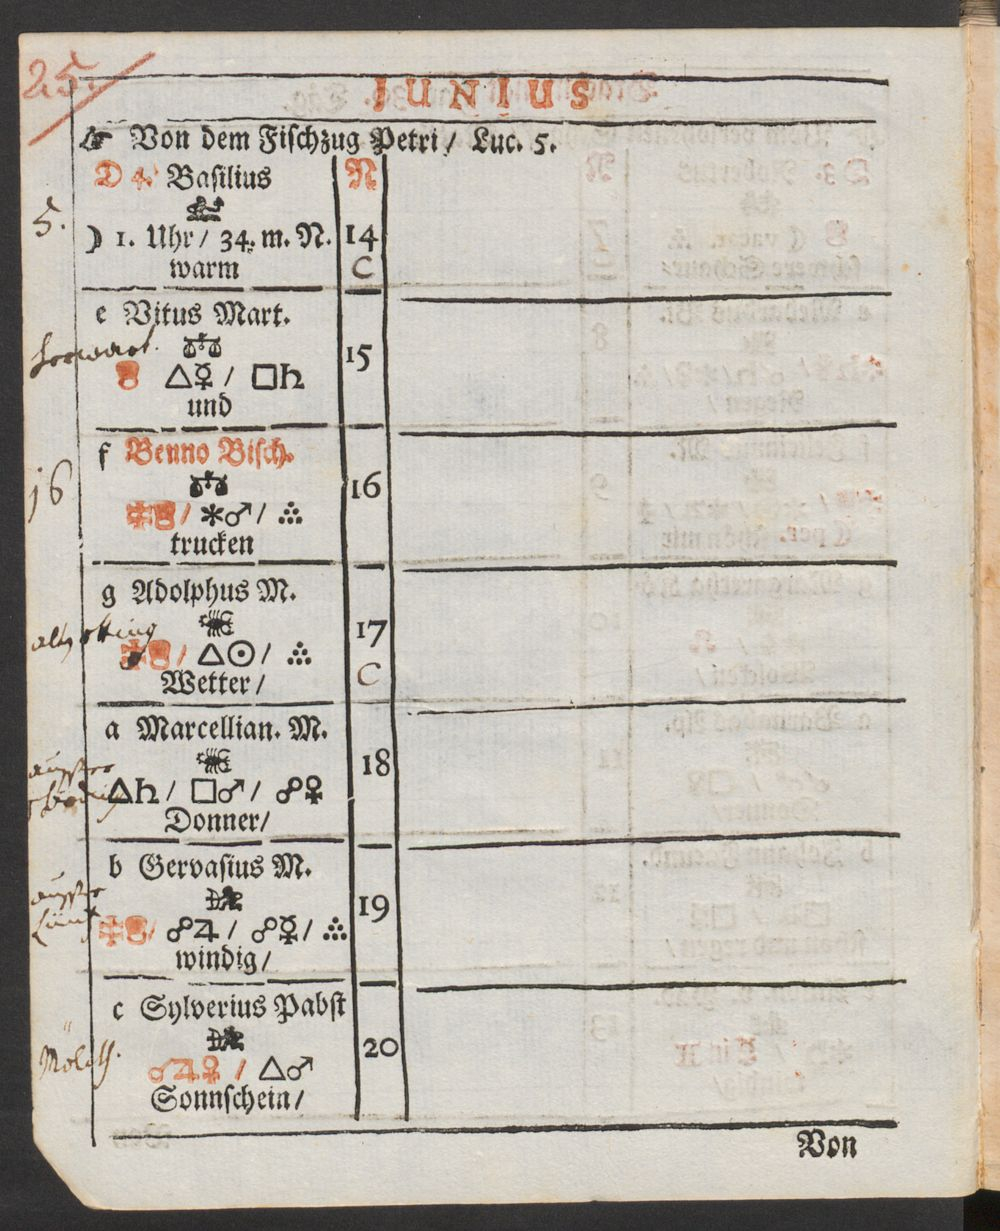 25.
JUNIUS
☞ Von dem Fischzug Petri / Luc. 5.
D 4. Basilius N
5.
☽ 1. Uhr / 34. m. N. 14
warm C
e Vitus Mart.
♎
△☿ / □♄ 15
und
f Benno Bisch.
♎ 16
16
/ ⚹♂ / ∴
trucken
g Adolphus M.
♏ 17
/ △☉ / ∴
Wetter / C
a Marcellian. M.
♏ 18
△♄ / □♂ / ☍♀
Donner /
b Gervasius M.
♐ 19
/ ☍♃ / ☍☿ / ∴
windig /
c Sylverius Pabst
♐ 20
☌♃♀ / △♂
Sonnschein /
Von